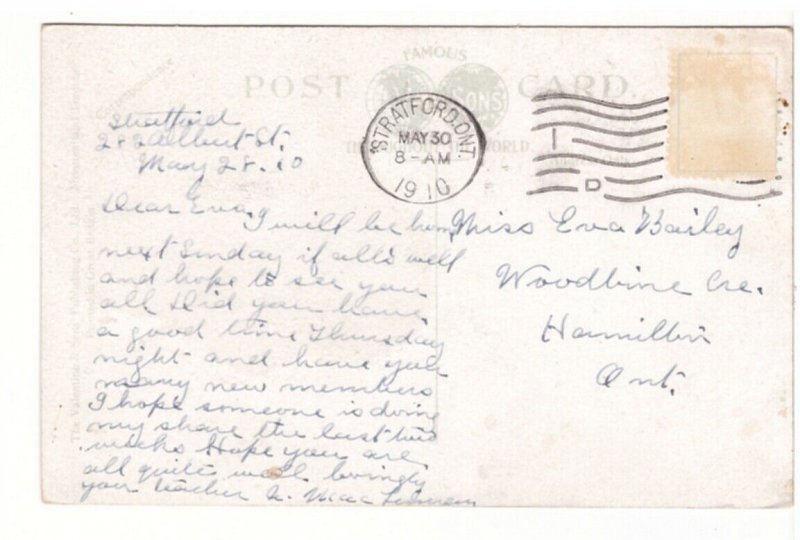 FAMOUS
POST CARD.
SONS
THROUGHOUT THE WORLD.
Correspondence
STRATFORD. ONT.
MAY 30
8-AM
1910
D
Stratford
282 Albert St.
May 28. 10
Dear Eva,
I will be home
next Sunday if all's well
and hope to see you
all Did you have
a good time Thursday
night and have you
many new members
I hope someone is doing
my share the last two
weeks Hope you are
all quite well lovingly
your teacher
Miss Eva Bailey
Woodbine Cre.
Hamilton
Ont.